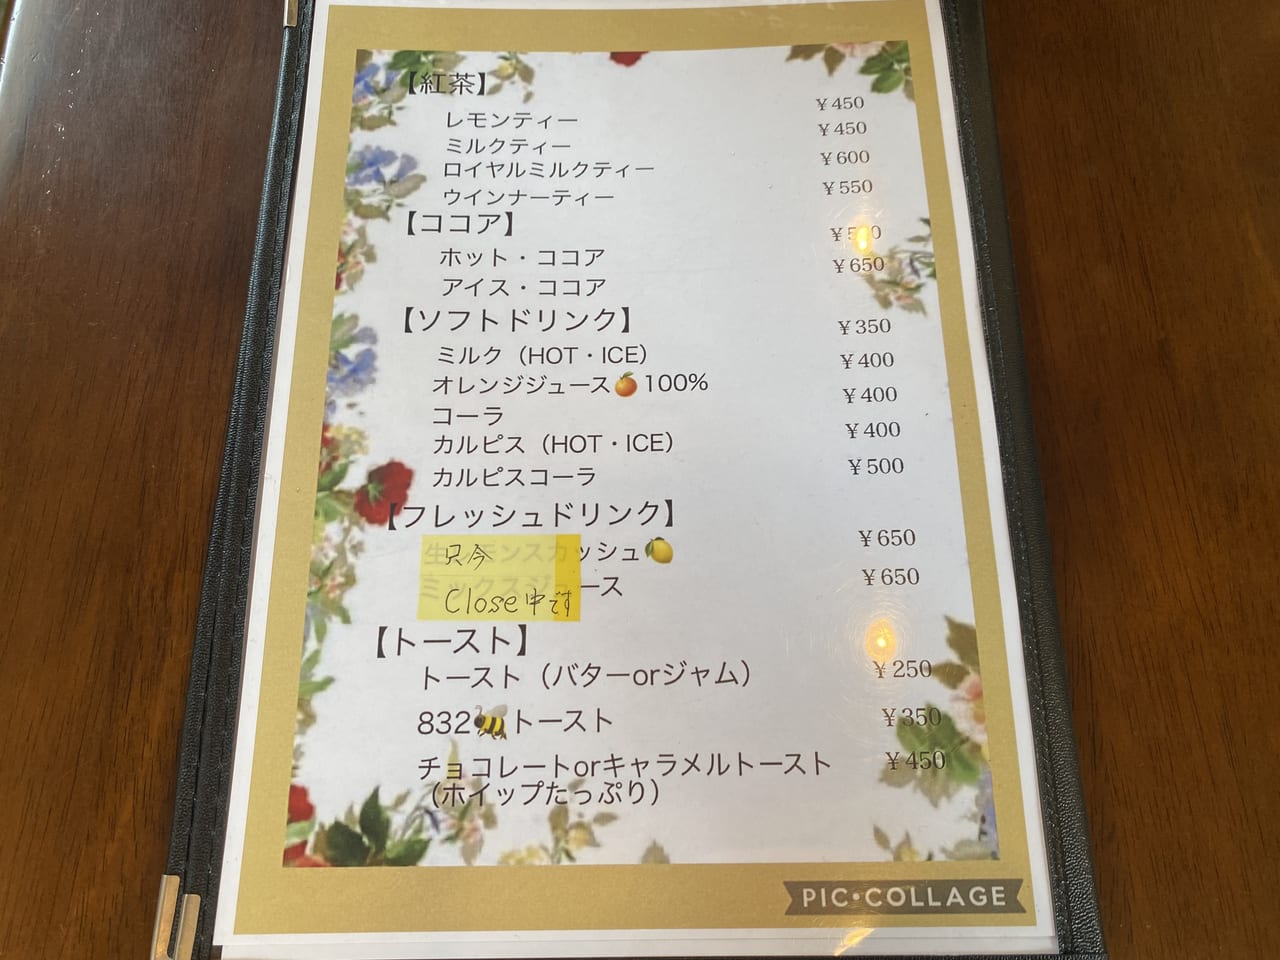 【紅茶】
レモンティー ¥450
ミルクティー ¥450
ロイヤルミルクティー ¥600
ウインナーティー ¥550
【ココア】
ホット・ココア
アイス・ココア ¥650
【ソフトドリンク】
ミルク（HOT・ICE） ¥350
オレンジジュース🍊100% ¥400
コーラ ¥400
カルピス（HOT・ICE） ¥400
カルピスコーラ ¥500
【フレッシュドリンク】
生レモンスカッシュ🍋 ¥650
ミックスジュース ¥650
只今
Close中です
【トースト】
トースト（バターorジャム） ¥250
832🐝トースト ¥350
チョコレートorキャラメルトースト ¥450
（ホイップたっぷり）
PIC•COLLAGE